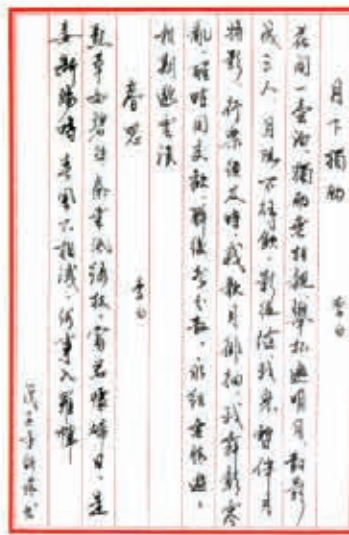 月下獨酌
李白
花間一壺酒，獨酌無相親。舉杯邀明月，對影
成三人。月既不解飲，影徒隨我身。暫伴月
將影，行樂須及時。我歌月徘徊，我舞影零
亂。醒時同交歡，醉後各分散。永結無情遊，
相期邈雲漢
春思
李白
燕草如碧絲，秦桑低綠枝。當君懷歸日，是
妾斷腸時。春風不相識，何事入羅幃